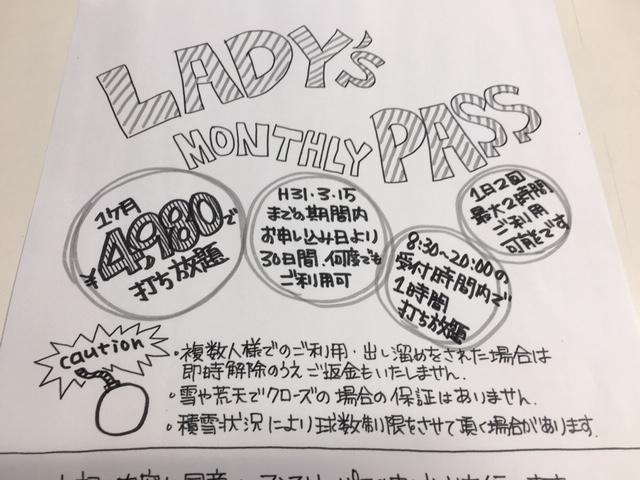 LADY's
MONTHLY PASS
1ヶ月
¥4,980で
打ち放題
H31.3.15
までの期間内
お申し込み日より
30日間.何度でも
ご利用可
8:30~20:00の
受付時間内で
1時間
打ち放題
1日2回
最大2時間
ご利用
可能です
caution
・複数人様でのご利用・出し溜めをされた場合は
即時解除のうえご返金もいたしません.
・雪や荒天でクローズの場合の保証はありません.
・積雪状況により球数制限をさせて頂く場合があります.